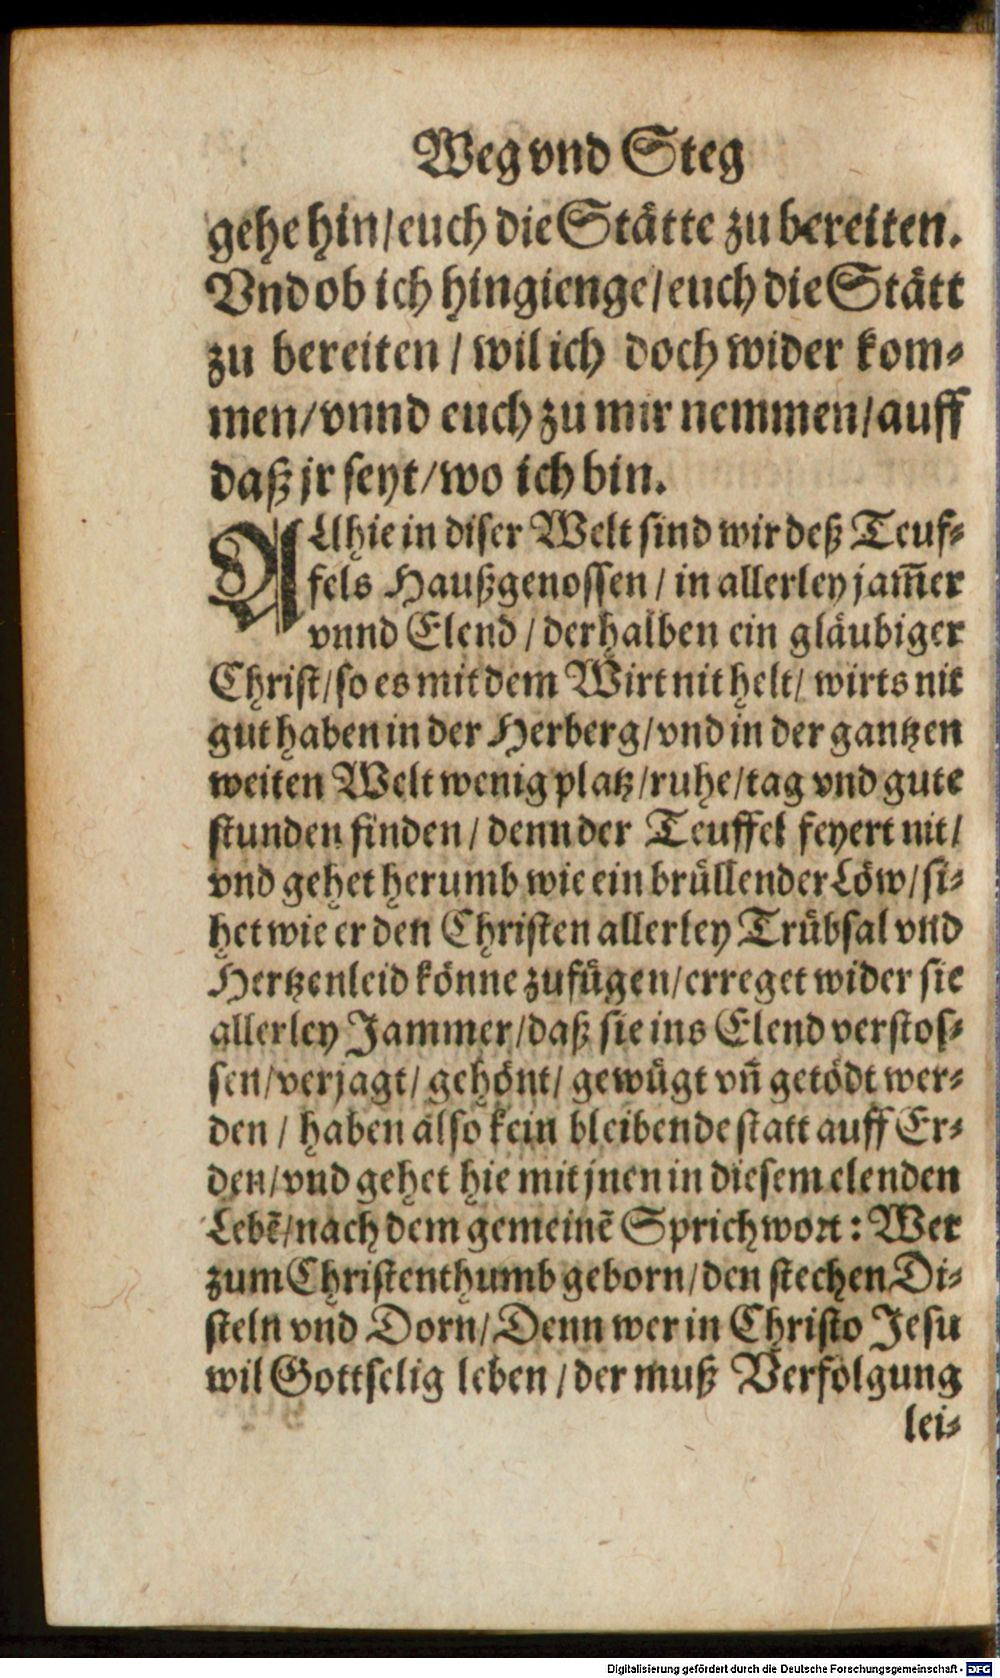 Weg vnd Steg
gehe hin/ euch die Stätte zu bereiten.
Vnd ob ich hingienge/ euch die Stätt
zu bereiten / wil ich doch wider kom-
men/ vnnd euch zu mir nemmen/ auff
daß jr seyt/ wo ich bin.
Allhie in diser Welt sind wir deß Teuf-
fels Haußgenossen / in allerley jam̄er
vnnd Elend / derhalben ein gläubiger
Christ/ so es mit dem Wirt nit helt/ wirts nit
gut haben in der Herberg/ vnd in der gantzen
weiten Welt wenig platz/ ruhe/ tag vnd gute
stunden finden/ denn der Teuffel feyert nit/
vnd gehet herumb wie ein brüllender Löw/ si-
het wie er den Christen allerley Trübsal vnd
Hertzenleid könne zufügen/ erreget wider sie
allerley Jammer/ daß sie ins Elend verstos-
sen/ verjagt/ gehönt/ gewügt vn̄ getödt wer-
den / haben also kein bleibende statt auff Er-
den/ vnd gehet hie mit jnen in diesem elenden
Lebē/ nach dem gemeinē Sprichwort: Wer
zum Christenthumb geborn/ den stechen Di-
steln vnd Dorn/ Denn wer in Christo Jesu
wil Gottselig leben / der muß Verfolgung
lei-
Digitalisierung gefördert durch die Deutsche Forschungsgemeinschaft - DFG